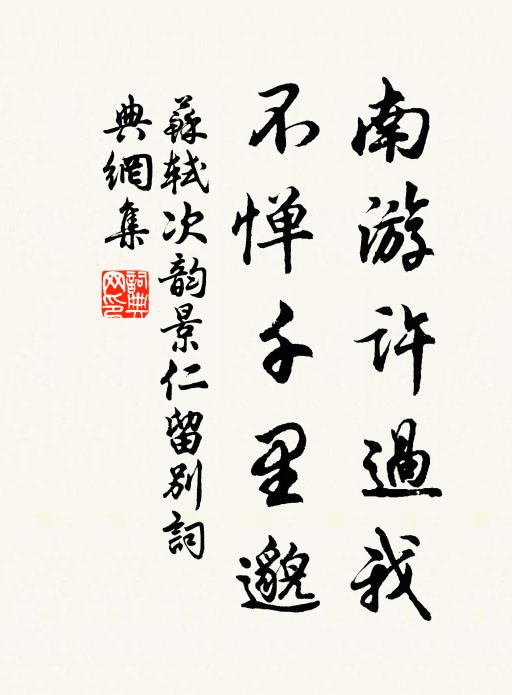 南游許過我
不惮千里邈
蘇軾次韵景仁留別詞
典網集
詞典
网印